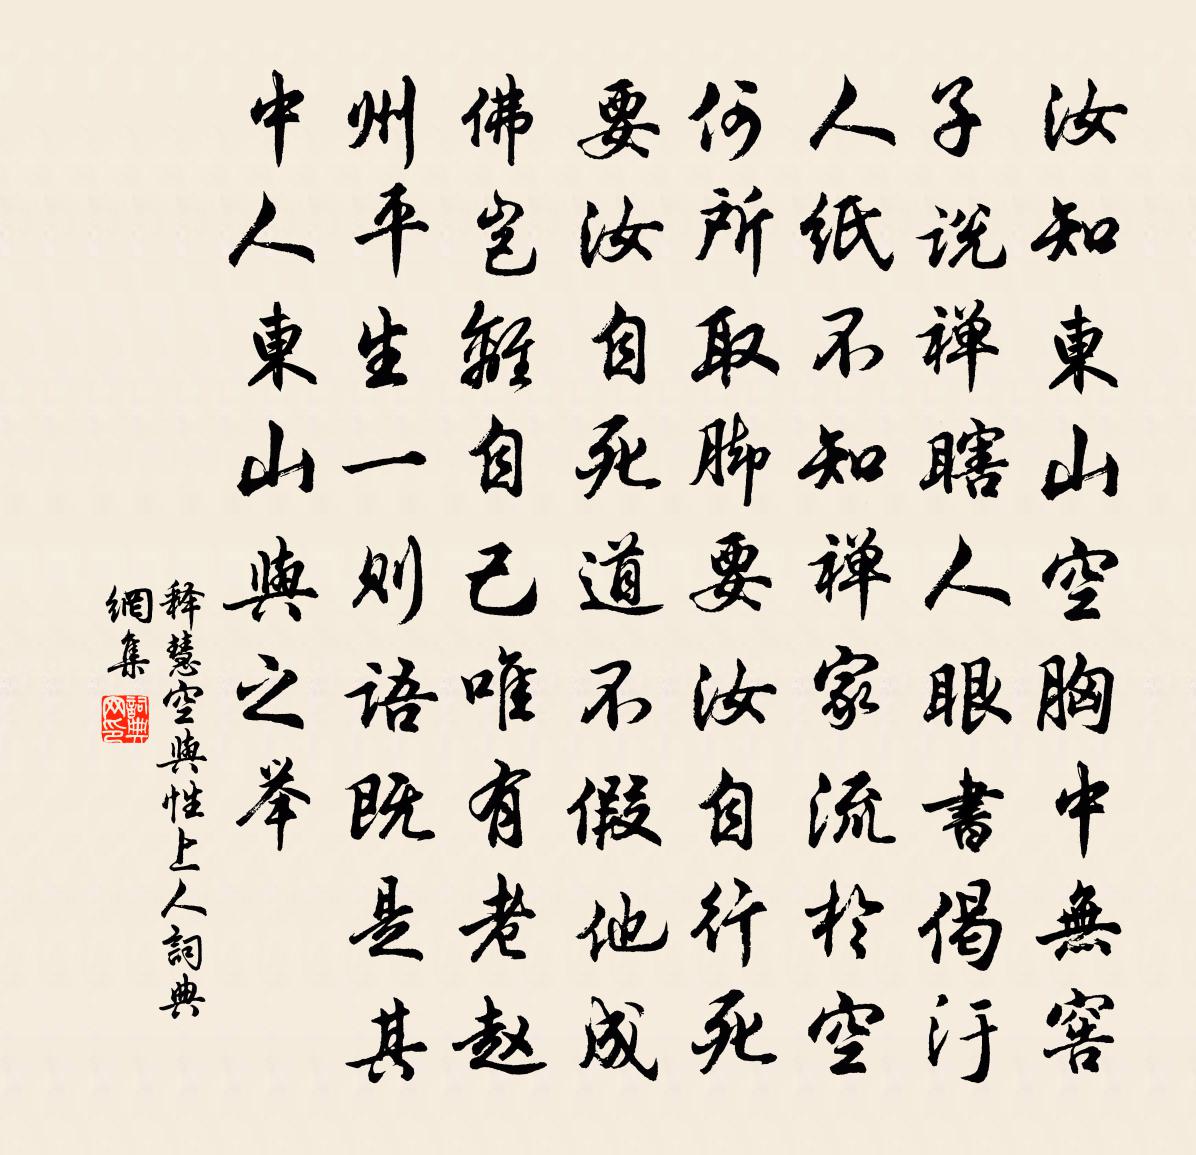 汝知東山空胸中無窖
子说禅瞎人眼書偈汙
人纸不知禅家流於空
何所取脚要汝自行死
要汝自死道不假他成
佛岂離自己唯有老赵
州平生一则语既是其
中人東山與之举
释慧空與性上人詞典
網集
詞典网印